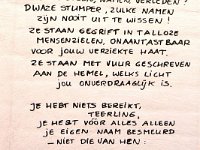 DWAZE STUMPER, ZULKE NAMEN
ZIJN NOOIT UIT TE WISSEN!
ZE STAAN GEGRIFT IN TALLOZE
MENSENZIELEN, ONAANTASTBAAR
VOOR JOUW VERZIEKTE HAAT.
ZE STAAN MET VUUR GESCHREVEN
AAN DE HEMEL, WELKS LICHT
JOU ONVERDRAAGLIJK IS.
JE HEBT NIETS BEREIKT,
TEERLING,
JE HEBT VÓÓR ALLES ALLEEN
JE EIGEN NAAM BESMEURD
_ NIET DIE VAN HEN: